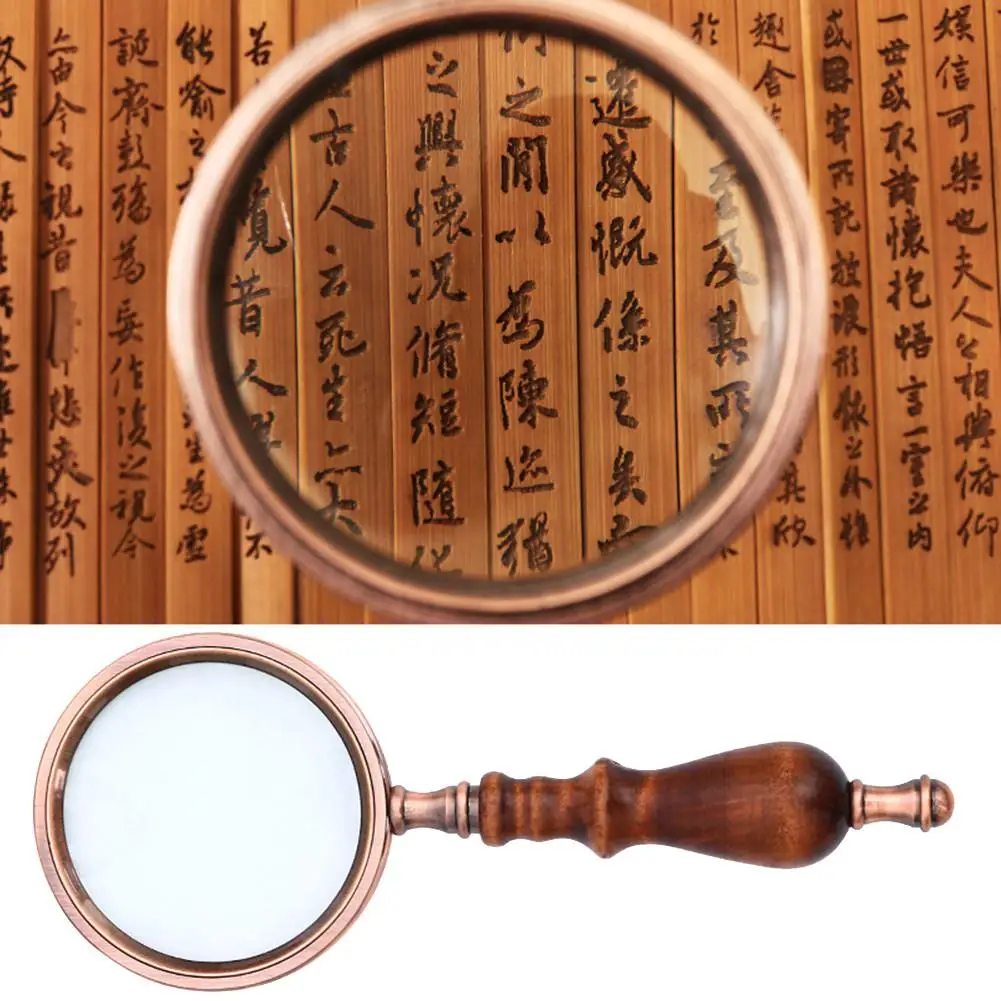 娛信可樂也夫人之相與俯仰
一世或取諸懷抱悟言一室之内
或因寄所託放浪形骸之外雖
趣舍 其欣
於
至及其所
遷感慨係之矣
之閒以為陳迹猶
之興懷況脩短隨化
古人云死生亦大
覽昔人興
若 不
能喻之 生為虛
誕齊彭殤為妄作後之視今
亦由今之視昔 悲夫故列